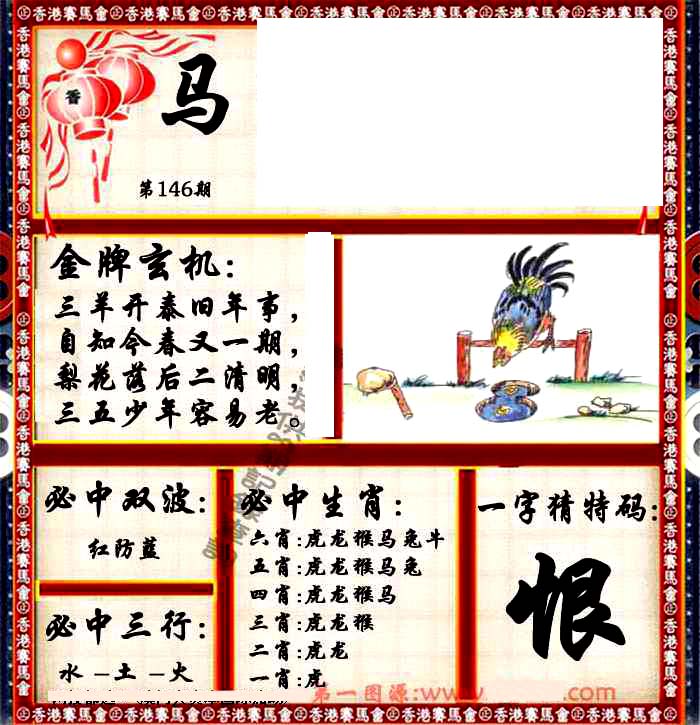 香港賽馬會
香
马
第146期
金牌玄机:
三羊开泰旧年事，
自知今春又一期，
梨花落后二清明，
三五少年容易老。
必中双波:
红防蓝
必中三行:
水－土－火
必中生肖:
六肖:虎龙猴马兔牛
五肖:虎龙猴马兔
四肖:虎龙猴马
三肖:虎龙猴
二肖:虎龙
一肖:虎
一字猜特码:
恨
第一图源:www.
.com